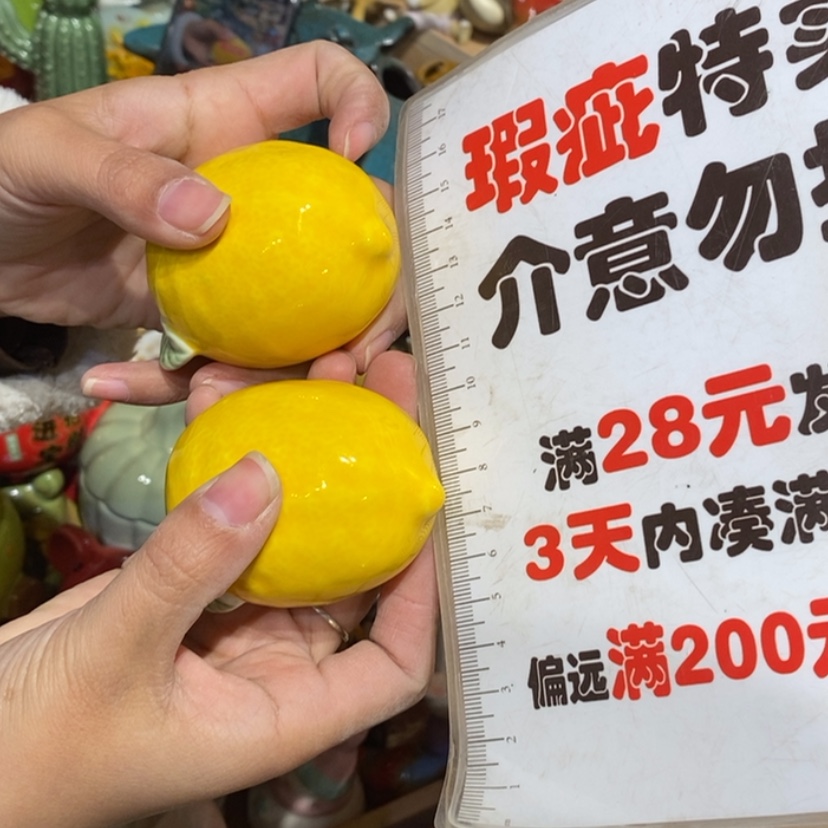 瑕疵特卖
介意勿
满28元发
3天内凑满
偏远满200元
17
16
15
14
13
12
11
10
9
8
7
6
5
4
3
2
1